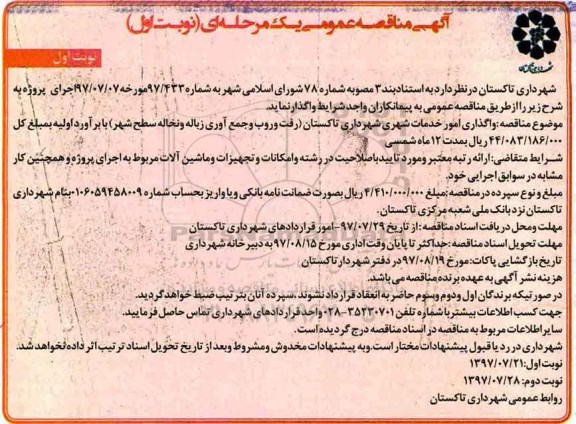 آگهی مناقصه عمومی یک مرحله‌ای (نوبت اول)
نوبت اول
شهرداری تاکستان
شهرداری تاکستان در نظر دارد به استناد بند ۳ مصوبه شماره ۷۸ شورای اسلامی شهر به شماره ۹۷/۴۳۳ مورخه ۹۷/۰۷/۰۷ اجرای پروژه به
شرح زیر را از طریق مناقصه عمومی به پیمانکاران واجد شرایط واگذار نماید.
موضوع مناقصه: واگذاری امور خدمات شهری شهرداری تاکستان (رفت و روب و جمع آوری زباله و نخاله سطح شهر) با برآورد اولیه بمبلغ کل
۴۴/۰۸۳/۱۸۶/۰۰۰ ریال بمدت ۱۲ ماه شمسی
شرایط متقاضی: ارائه رتبه معتبر و مورد تایید با صلاحیت در رشته و امکانات و تجهیزات و ماشین آلات مربوط به اجرای پروژه و همچنین کار
مشابه در سوابق اجرایی خود.
مبلغ و نوع سپرده در مناقصه: مبلغ ۴/۴۱۰/۰۰۰/۰۰۰ ریال بصورت ضمانت نامه بانکی و یا واریز بحساب شماره ۰۱۰۶۰۵۹۴۵۸۰۰۹ بنام شهرداری
تاکستان نزد بانک ملی شعبه مرکزی تاکستان.
مهلت و محل دریافت اسناد مناقصه: از تاریخ ۹۷/۰۷/۲۹- امور قراردادهای شهرداری تاکستان
مهلت تحویل اسناد مناقصه: حداکثر تا پایان وقت اداری مورخ ۹۷/۰۸/۱۵ به دبیرخانه شهرداری
تاریخ بازگشایی پاکات: مورخ ۹۷/۰۸/۱۹ در دفتر شهردار تاکستان
هزینه نشر آگهی به عهده برنده مناقصه می باشد.
در صورتیکه برندگان اول و دوم و سوم حاضر به انعقاد قرارداد نشوند، سپرده آنان بترتیب ضبط خواهد گردید.
جهت کسب اطلاعات بیشتر با شماره تلفن ۳۵۲۳۰۷۰۱-۰۲۸ واحد قراردادهای شهرداری تماس حاصل فرمایید.
سایر اطلاعات مربوط به مناقصه در اسناد مناقصه درج گردیده است.
شهرداری در رد یا قبول پیشنهادات مختار است. وبه پیشنهادات مخدوش و مشروط و بعد از تاریخ تحویل اسناد ترتیب اثر داده نخواهد شد.
نوبت اول: ۱۳۹۷/۰۷/۲۱
نوبت دوم: ۱۳۹۷/۰۷/۲۸
روابط عمومی شهرداری تاکستان